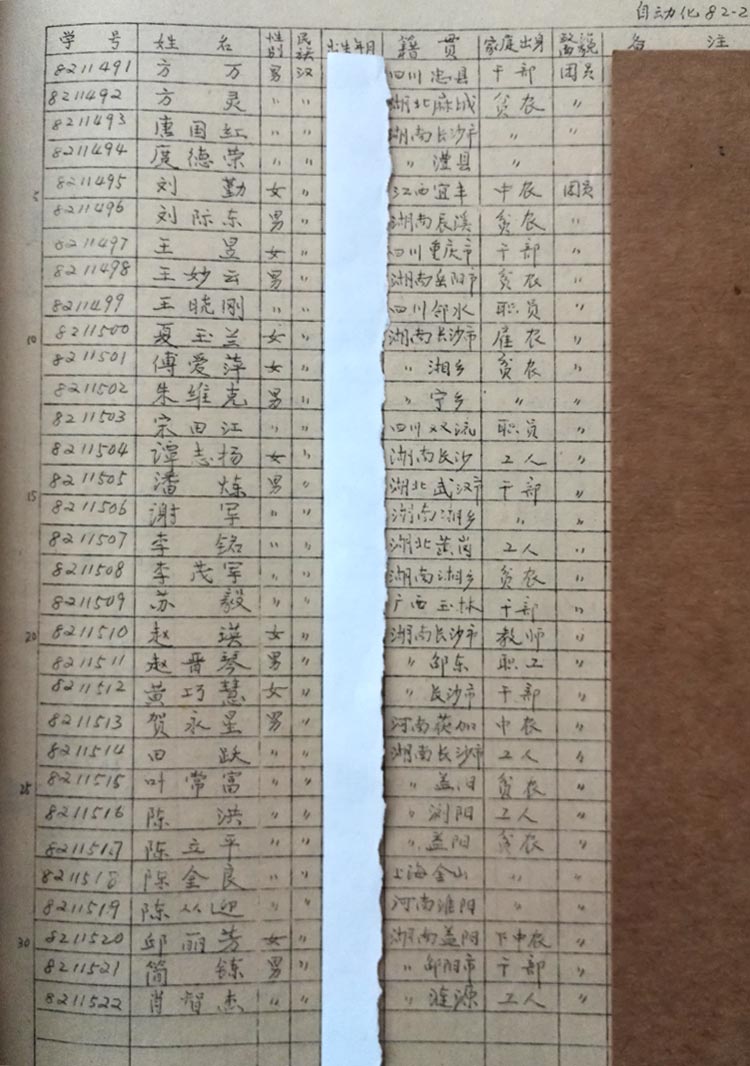 自动化82-2
学号 姓名 性别 民族 出生年月 籍贯 家庭出身 政治面貌 备注
8211491 方万 男 汉 四川忠县 干部 团员
8211492 方灵 〃 〃 湖北麻城 贫农 〃
8211493 唐国红 〃 〃 湖南长沙市 〃 〃
8211494 庹德荣 〃 〃 〃 澧县 〃
5 8211495 刘勤 女 〃 江西宜丰 中农 团员
8211496 刘际东 男 〃 湖南辰溪 贫农 〃
8211497 王昱 女 〃 四川重庆市 干部 〃
8211498 王妙云 男 〃 湖南岳阳市 贫农 〃
8211499 王晓刚 〃 〃 四川邻水 职员 〃
10 8211500 夏玉兰 女 〃 湖南长沙市 雇农 〃
8211501 傅爱萍 女 〃 〃 湘乡 贫农 〃
8211502 朱维克 男 〃 〃 宁乡 〃 〃
8211503 宋田江 〃 〃 四川双流 职员 〃
8211504 谭志扬 女 〃 湖南长沙 工人 〃
15 8211505 潘炼 男 〃 湖北武汉市 干部 〃
8211506 谢军 〃 〃 湖南湘乡 〃 〃
8211507 李铭 〃 〃 湖北黄岗 工人 〃
8211508 李茂军 〃 〃 湖南湘乡 贫农 〃
8211509 苏毅 〃 〃 广西玉林 干部 〃
20 8211510 赵瑛 女 〃 湖南长沙市 教师 〃
8211511 赵晋琴 男 〃 〃 邵东 职工 〃
8211512 黄巧慧 女 〃 〃 长沙市 干部 〃
8211513 贺永星 男 〃 河南获加 中农 〃
8211514 田跃 〃 〃 湖南长沙市 工人 〃
25 8211515 叶常富 〃 〃 〃 益阳 贫农 〃
8211516 陈洪 〃 〃 〃 浏阳 工人 〃
8211517 陈立平 〃 〃 〃 益阳 贫农 〃
8211518 陈金良 〃 〃 上海金山 〃 〃
8211519 陈从迎 〃 〃 河南淮阳 〃 〃
30 8211520 邱丽芳 女 〃 湖南益阳 下中农 〃
8211521 简铼 男 〃 〃 邵阳市 干部 〃
8211522 肖智杰 〃 〃 〃 涟源 工人 〃